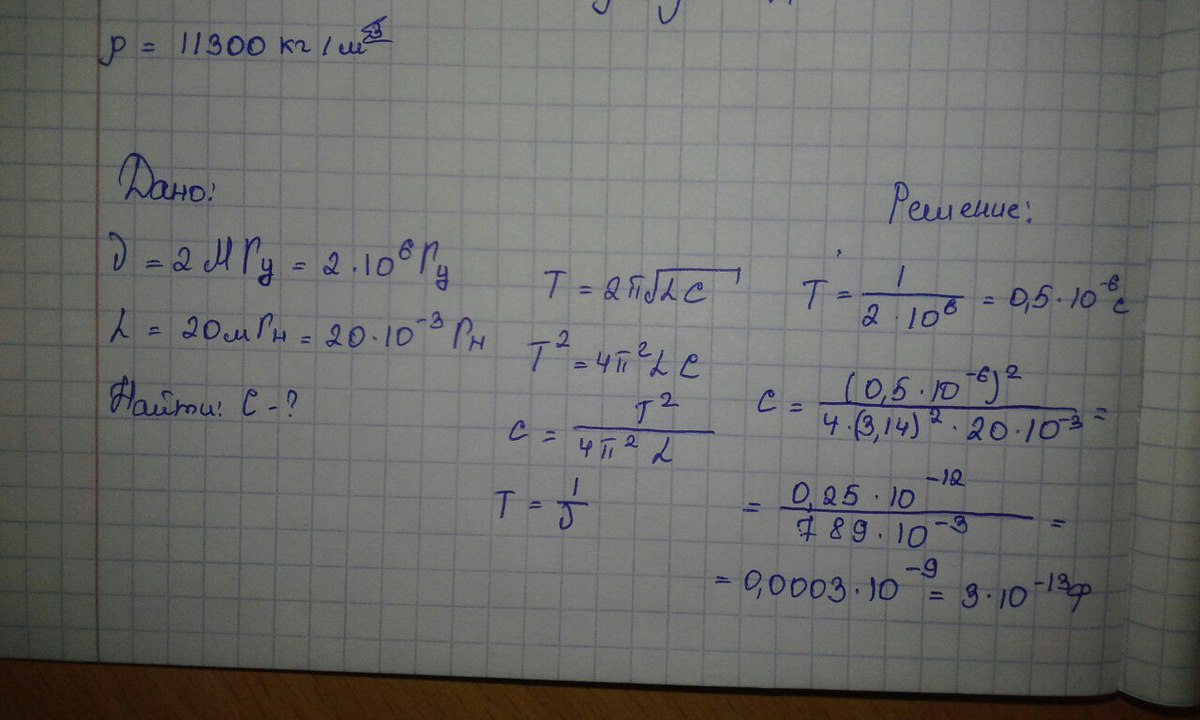 ρ = 11300 кг/м³
Дано:
ν = 2 МГц = 2·10⁶ Гц
L = 20мГн = 20·10⁻³ Гн
Найти: C - ?
T = 2π√LC
T² = 4π²LC
C = T² / 4π²L
T = 1/ν
Решение:
T = 1 / 2·10⁶ = 0,5·10⁻⁶ с
C = (0,5·10⁻⁶)² / 4·(3,14)²·20·10⁻³ =
= 0,25·10⁻¹² / 789·10⁻³ =
= 0,0003·10⁻⁹ = 3·10⁻¹³ф